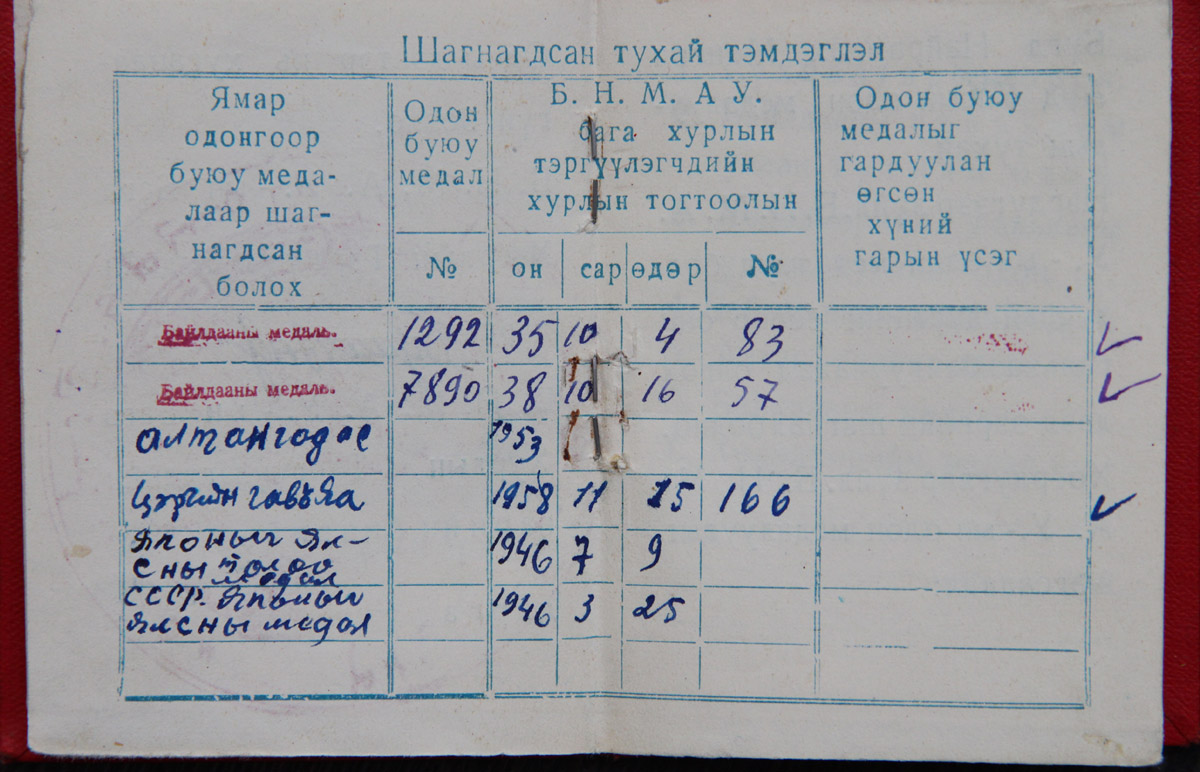 Шагнагдсан тухай тэмдэглэл
Ямар
одонгоор
буюу меда-
лаар шаг-
нагдсан
болох
Одон
буюу
медал
№
Б. Н. М. А У.
бага хурлын
тэргүүлэгчдийн
хурлын тогтоолын
он сар өдөр №
Одон буюу
медалыг
гардуулан
өгсөн
хүний
гарын үсэг
Байлдааны медаль. 1292 35 10 4 83
Байлдааны медаль. 7890 38 10 16 57
алтангадас 1953
Цэргийн гавъяа 1958 11 25 166
Японыг Ял-
сны төлөө
медал
1946 7 9
СССР. Японыг
Ялсны медал
1946 3 25